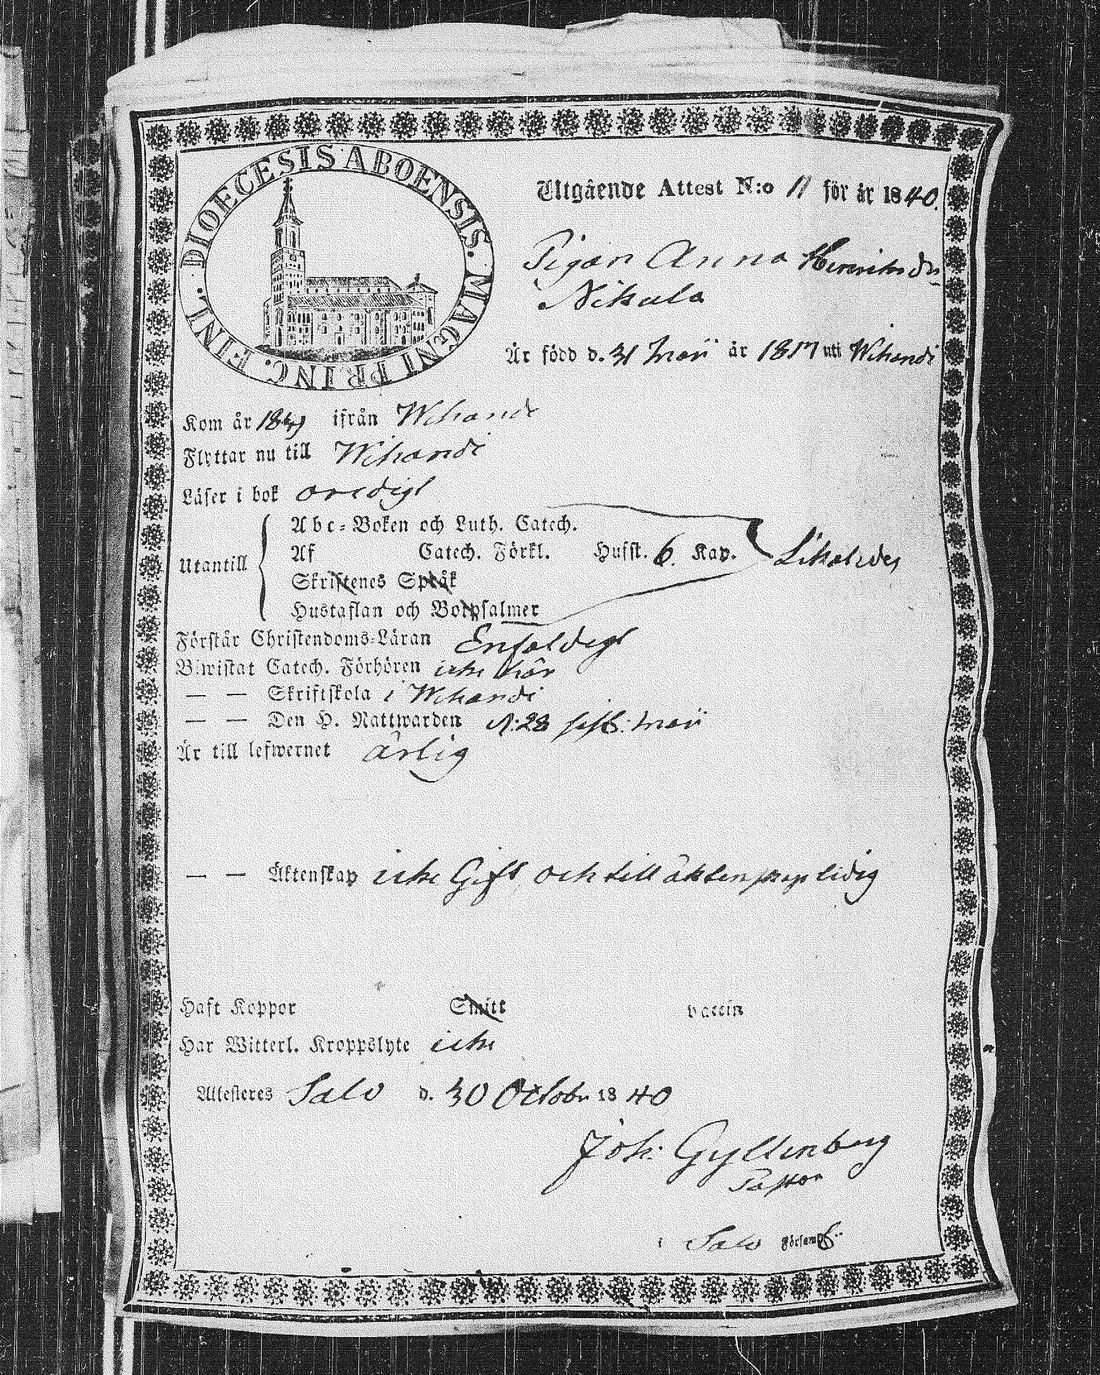 DIOECESIS ABOENSIS. MAGNI PRINC. FINL.
Utgående Attest N:o 11 för år 1840.
Pigan Anna Henriksdr
Nikula
Är född d. 31 Maii år 1817 uti Wihandi
Kom år 18 ifrån Wihandi
Flyttar nu till Wihandi
Läser i bok oredigt
Abc-Boken och Luth. Catech.
Utantill Af Catech. Förkl. Husft. 6. Kap. Likaledes
Skriftenes Språk
Hustaflan och Botpsalmer
Förstår Christendoms-Läran Enfaldigt
Biwistat Catech. Förhören icke här
— — Skriftskola i Wihandi
— — Den H. Nattwarden d. 28 sistl. Maii
Är till lefwernet ärlig
— — Äktenskap icke Gift och till äktenskap ledig
Haft Koppor Smitt vaccin
Har Witterl. Kroppslyte icke
Attesteres Salo d. 30 Octobr 1840
Joh: Gyllenberg
Pastor
i Salo Församl: